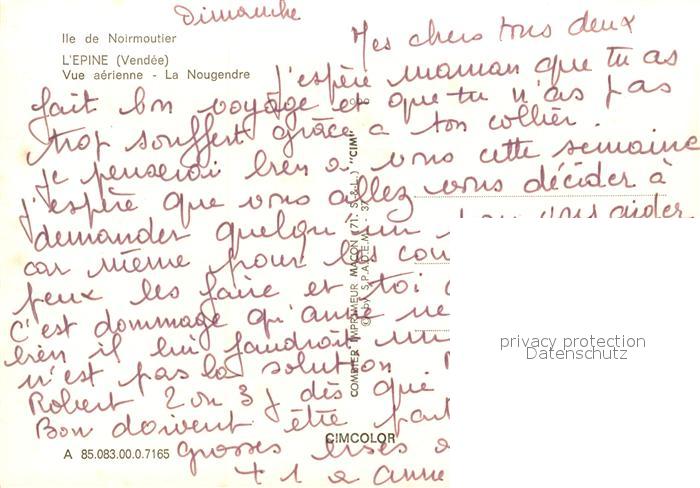 Dimanche
Ile de Noirmoutier
L'EPINE (Vendée)
Vue aérienne - La Nougendre
Mes chers tous deux
J'espère maman que tu as
fait bon voyage et que tu n'as pas
trop souffert grâce a ton collier.
Je penserai bien a vous cette semaine
j'espère que vous allez vous décider à
demander quelqu'un vous aider
car même pour les cou
peux les faire et toi
C'est dommage qu'anne ne
bien il lui faudrait un
n'est pas la solution
Robert 2 ou 3 j dès que
Bon doivent être part
grosses bises a
+ 1 a anne
COMBIER IMPRIMEUR MACON (71. S.-&-L.) "CIM"
© by S.P.A.D.E.M. - 37
CIMCOLOR
A 85.083.00.0.7165
privacy protection
Datenschutz